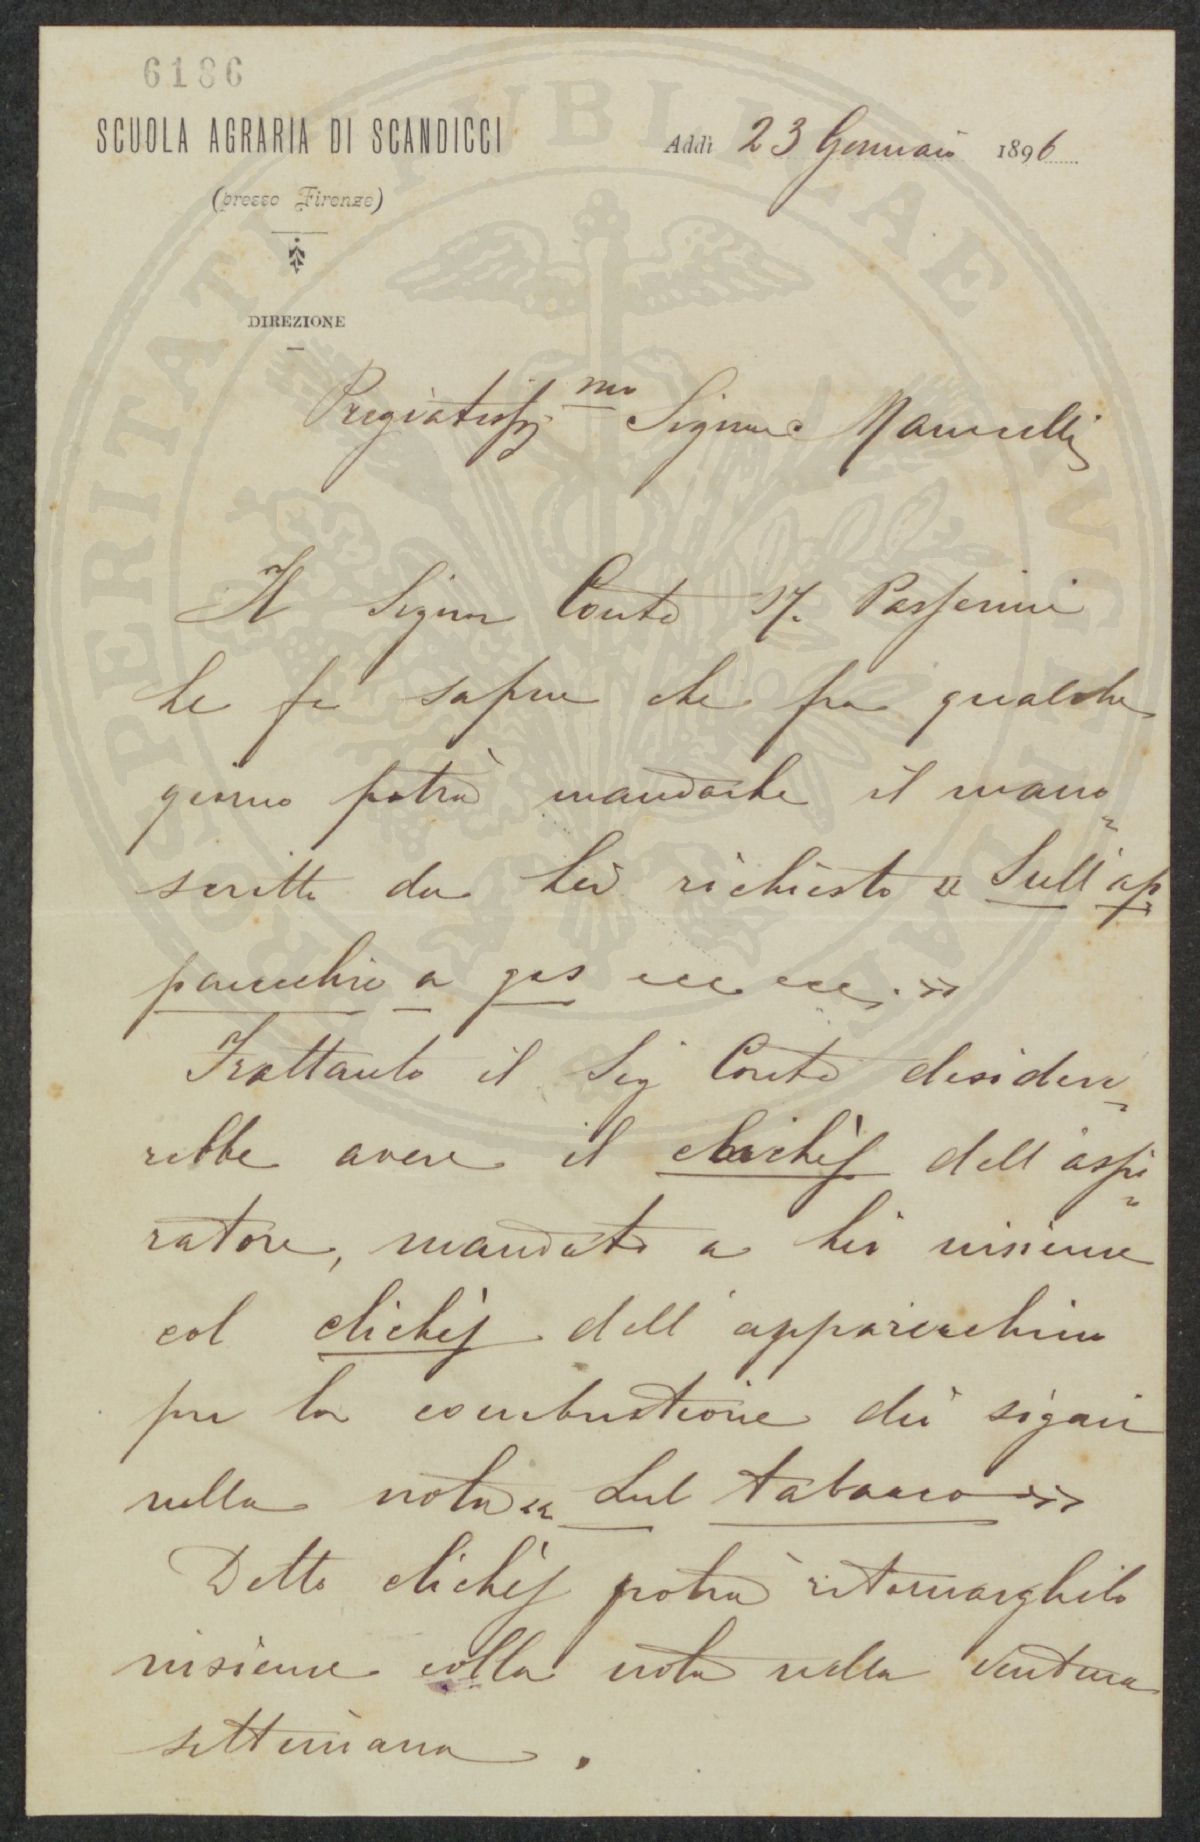 6186
SCUOLA AGRARIA DI SCANDICCI
Addì 23 Gennaio 1896
(presso Firenze)
DIREZIONE
Pregiatiss.mo Signore Marucelli
Il Signor Conte N. Passerini
Le fa sapere che fra qualche
giorno potrà mandarle il mano=
scritto da Lei richiesto « Sull'ap=
parecchio a gas ecc ecc. »
Frattanto il Sig Conte deside=
rebbe avere il clichès dell'aspi=
ratore, mandato a Lei insieme
col clichès dell'apparecchio
per la combustione dei sigari
nella nota « Sul tabacco »
Detto clichès potrà ritornarglielo
insieme colla nota nella ventura
settimana.
PROSPERITATI PUBLICAE AUGENDAE